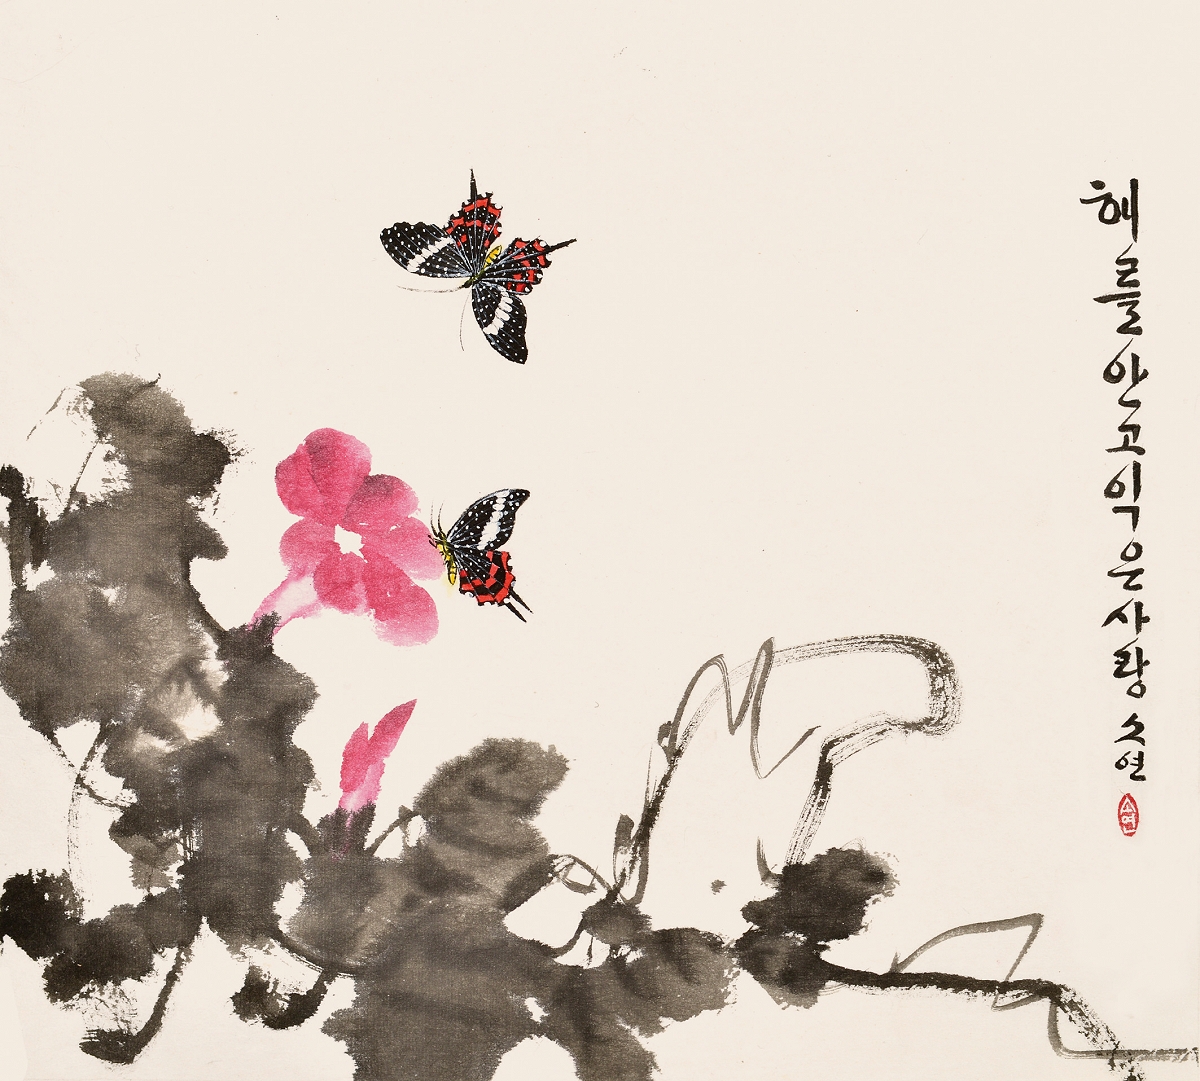 해를안고익은사랑 소연
소연